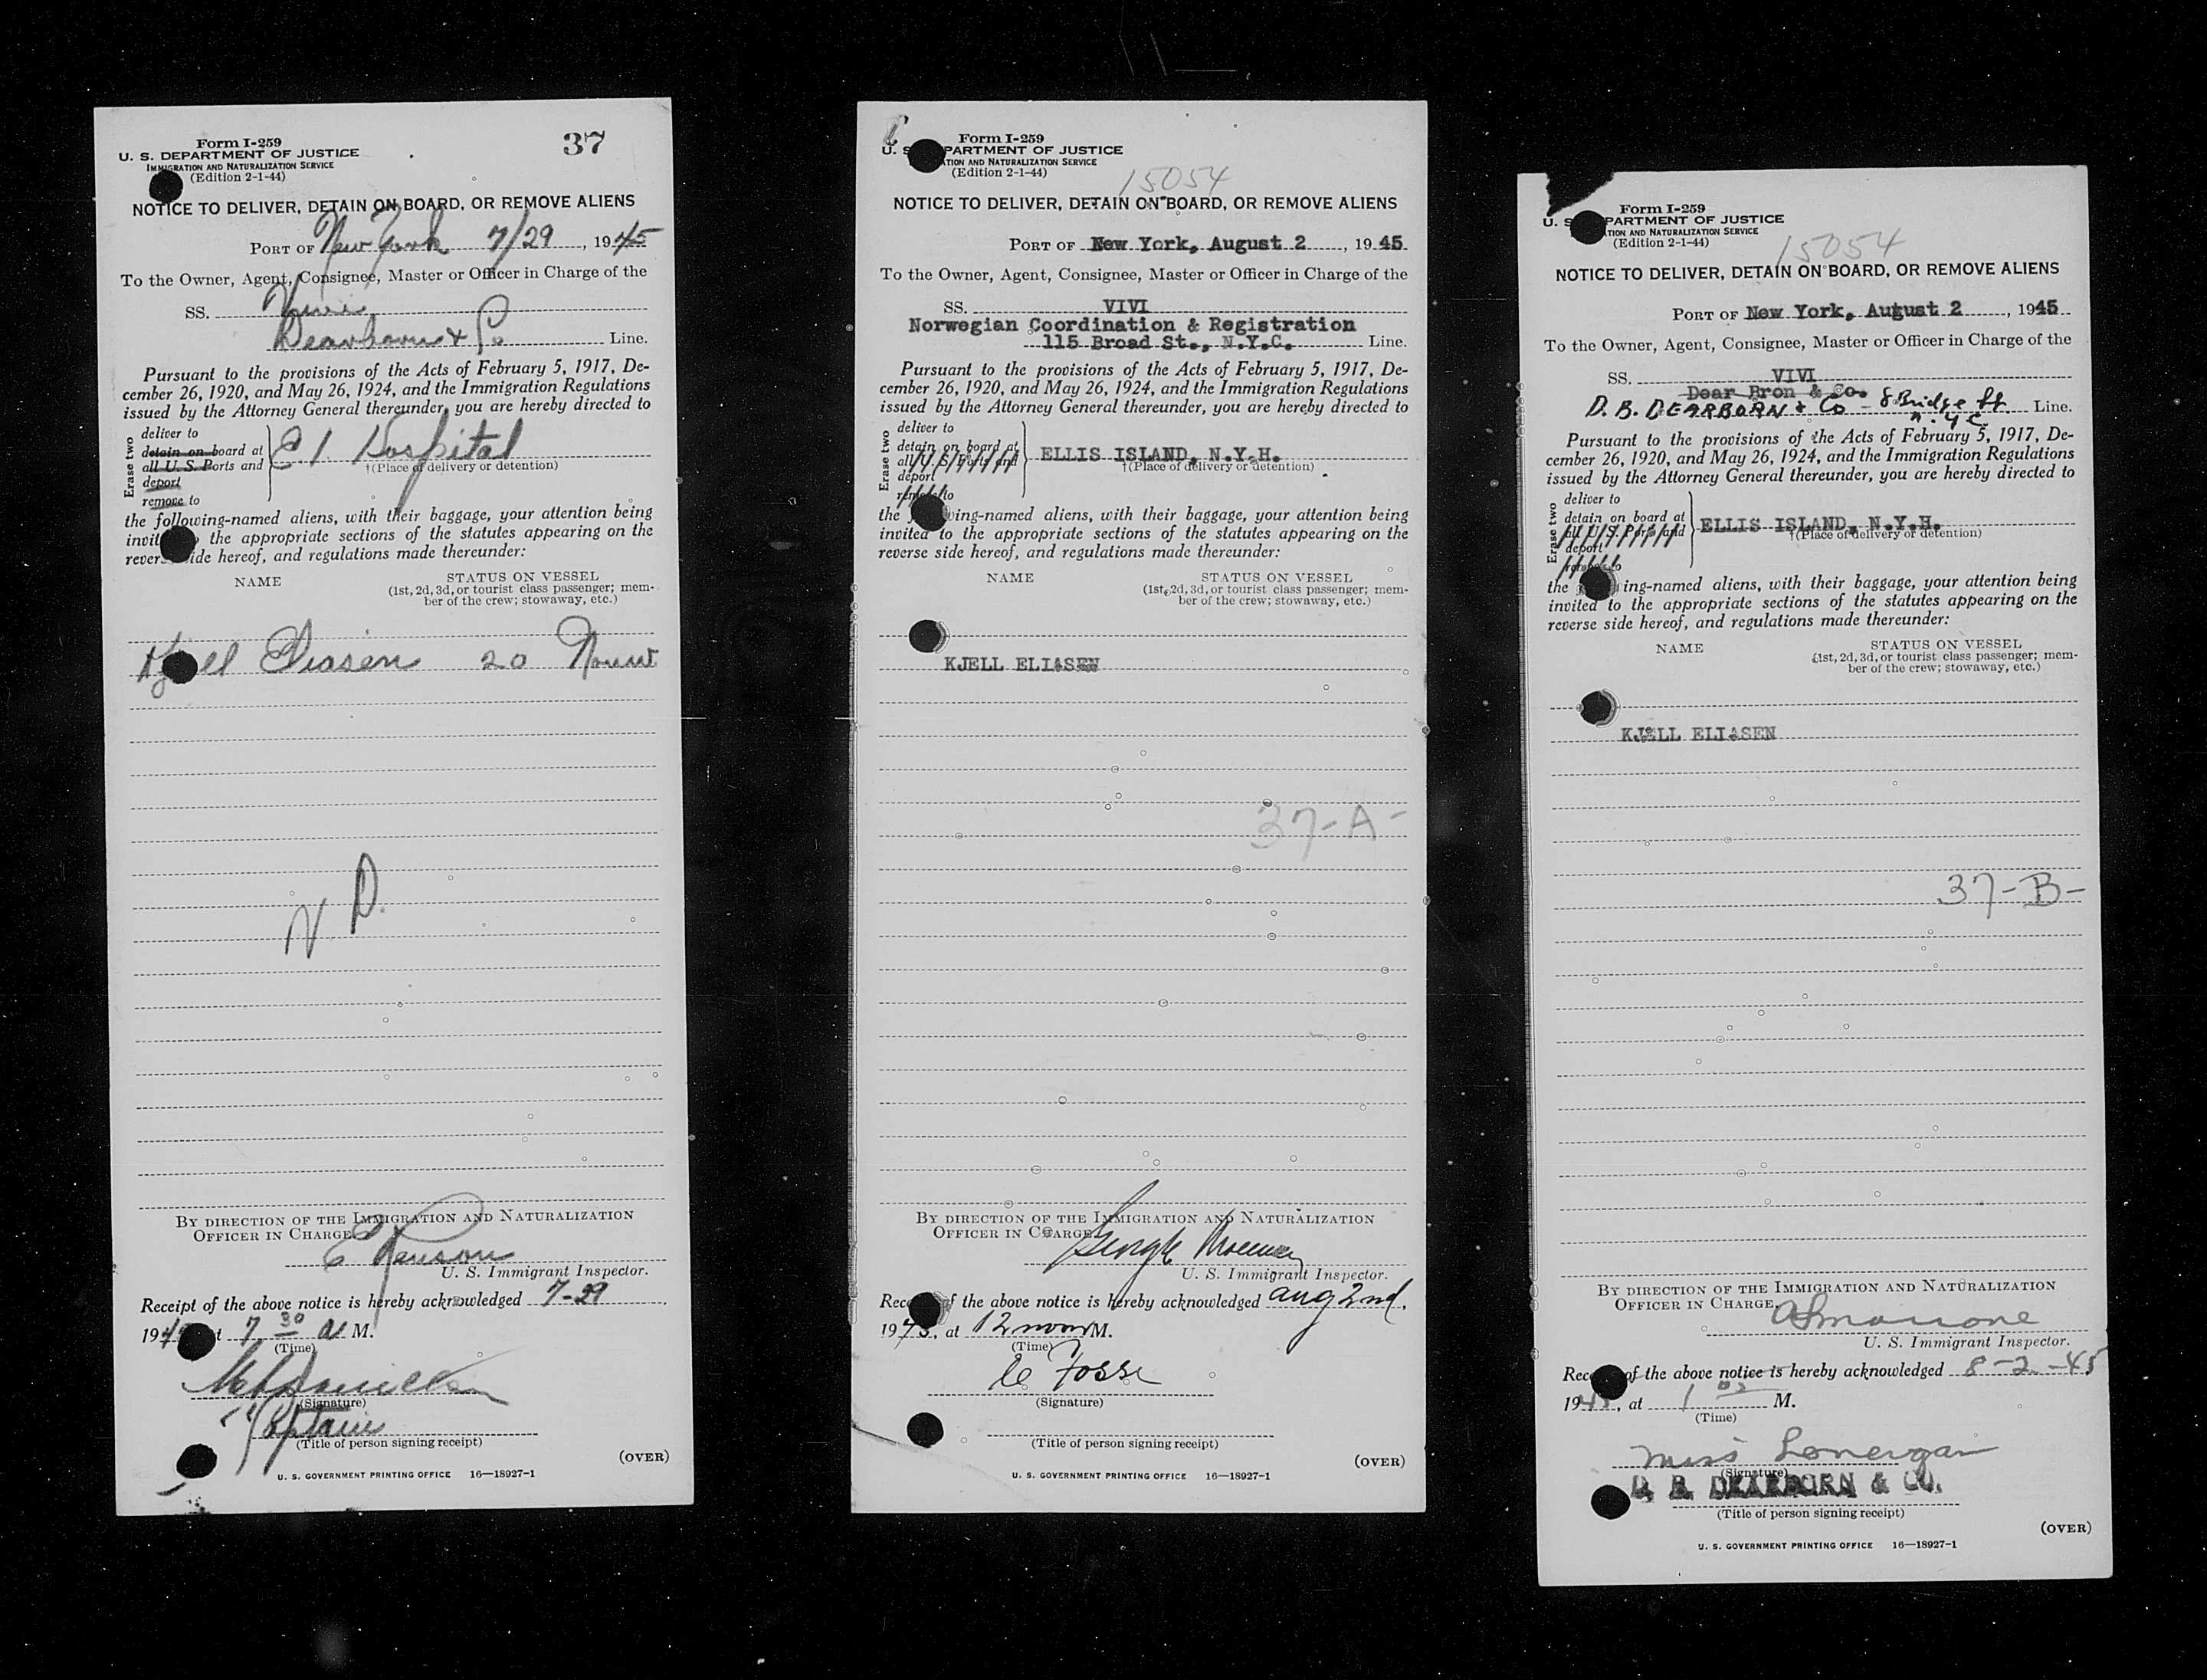 Form I-259
U. S. DEPARTMENT OF JUSTICE
IMMIGRATION AND NATURALIZATION SERVICE
(Edition 2-1-44)
37
NOTICE TO DELIVER, DETAIN ON BOARD, OR REMOVE ALIENS
PORT OF New York 7/29, 1945
To the Owner, Agent, Consignee, Master or Officer in Charge of the
SS.
Dearborn & Co Line.
Pursuant to the provisions of the Acts of February 5, 1917, De-
cember 26, 1920, and May 26, 1924, and the Immigration Regulations
issued by the Attorney General thereunder, you are hereby directed to
Erase two
deliver to
detain on board at
all U. S. Ports and
deport
remove to
E I Hospital
†(Place of delivery or detention)
the following-named aliens, with their baggage, your attention being
invit the appropriate sections of the statutes appearing on the
rever ide hereof, and regulations made thereunder:
NAME
STATUS ON VESSEL
(1st, 2d, 3d, or tourist class passenger; mem-
ber of the crew; stowaway, etc.)
Kjell Eliasen 20
V. D.
BY DIRECTION OF THE IMMIGRATION AND NATURALIZATION
OFFICER IN CHARGE.
U. S. Immigrant Inspector.
Receipt of the above notice is hereby acknowledged 7-29,
194 t 7 30 A M.
(Time)
(Signature)
Captain
(Title of person signing receipt)
(OVER)
U. S. GOVERNMENT PRINTING OFFICE 16—18927-1
Form I-259
U. S PARTMENT OF JUSTICE
TION AND NATURALIZATION SERVICE
(Edition 2-1-44)
15054
NOTICE TO DELIVER, DETAIN ON BOARD, OR REMOVE ALIENS
PORT OF New York, August 2, 1945
To the Owner, Agent, Consignee, Master or Officer in Charge of the
SS. VIVI
Norwegian Coordination & Registration
115 Broad St., N.Y.C. Line.
Pursuant to the provisions of the Acts of February 5, 1917, De-
cember 26, 1920, and May 26, 1924, and the Immigration Regulations
issued by the Attorney General thereunder, you are hereby directed to
Erase two
deliver to
detain on board at
all U. S. Ports and
deport
remove to
ELLIS ISLAND, N.Y.H.
†(Place of delivery or detention)
the wing-named aliens, with their baggage, your attention being
invited to the appropriate sections of the statutes appearing on the
reverse side hereof, and regulations made thereunder:
NAME
STATUS ON VESSEL
(1st, 2d, 3d, or tourist class passenger; mem-
ber of the crew; stowaway, etc.)
KJELL ELIASEN
37-A-
BY DIRECTION OF THE IMMIGRATION AND NATURALIZATION
OFFICER IN CHARGE.
George
U. S. Immigrant Inspector.
Rec f the above notice is hereby acknowledged Aug 2nd,
1945, at 12 noon M.
(Time)
le Fosse
(Signature)
(Title of person signing receipt)
(OVER)
U. S. GOVERNMENT PRINTING OFFICE 16—18927-1
Form I-259
U. S PARTMENT OF JUSTICE
TION AND NATURALIZATION SERVICE
(Edition 2-1-44)
15054
NOTICE TO DELIVER, DETAIN ON BOARD, OR REMOVE ALIENS
PORT OF New York, August 2, 1945
To the Owner, Agent, Consignee, Master or Officer in Charge of the
SS. VIVI
Dear Bron & Co.
D. B. DEARBORN & Co - 8 Bridge St. N.Y.C. Line.
Pursuant to the provisions of the Acts of February 5, 1917, De-
cember 26, 1920, and May 26, 1924, and the Immigration Regulations
issued by the Attorney General thereunder, you are hereby directed to
Erase two
deliver to
detain on board at
all U. S. Ports and
deport
remove to
ELLIS ISLAND, N.Y.H.
†(Place of delivery or detention)
the ing-named aliens, with their baggage, your attention being
invited to the appropriate sections of the statutes appearing on the
reverse side hereof, and regulations made thereunder:
NAME
STATUS ON VESSEL
(1st, 2d, 3d, or tourist class passenger; mem-
ber of the crew; stowaway, etc.)
KJELL ELIASEN
37-B-
BY DIRECTION OF THE IMMIGRATION AND NATURALIZATION
OFFICER IN CHARGE.
U. S. Immigrant Inspector.
Rec of the above notice is hereby acknowledged 8-2-45
194, at 1 M.
(Time)
Miss Lonergan
(Signature)
D. B. DEARBORN & CO.
(Title of person signing receipt)
(OVER)
U. S. GOVERNMENT PRINTING OFFICE 16—18927-1